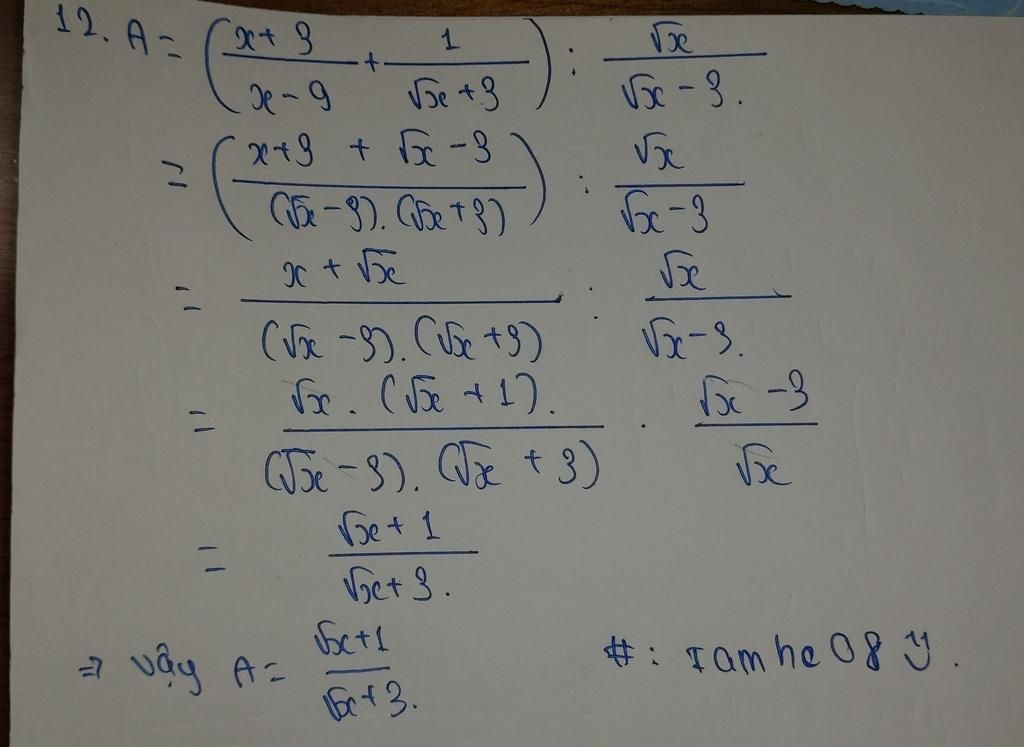 12. A = ( (x+3)/(x-9) + 1/(√x+3) ) : √x/(√x-3).
= ( (x+3 + √x-3)/((√x-3).(√x+3)) ) : √x/(√x-3)
= (x+√x)/((√x-3).(√x+3)) : √x/(√x-3).
= (√x.(√x+1).)/((√x-3).(√x+3)) . (√x-3)/√x
= (√x+1)/(√x+3).
⇒ vậy A = (√x+1)/(√x+3). #: Iamhe08